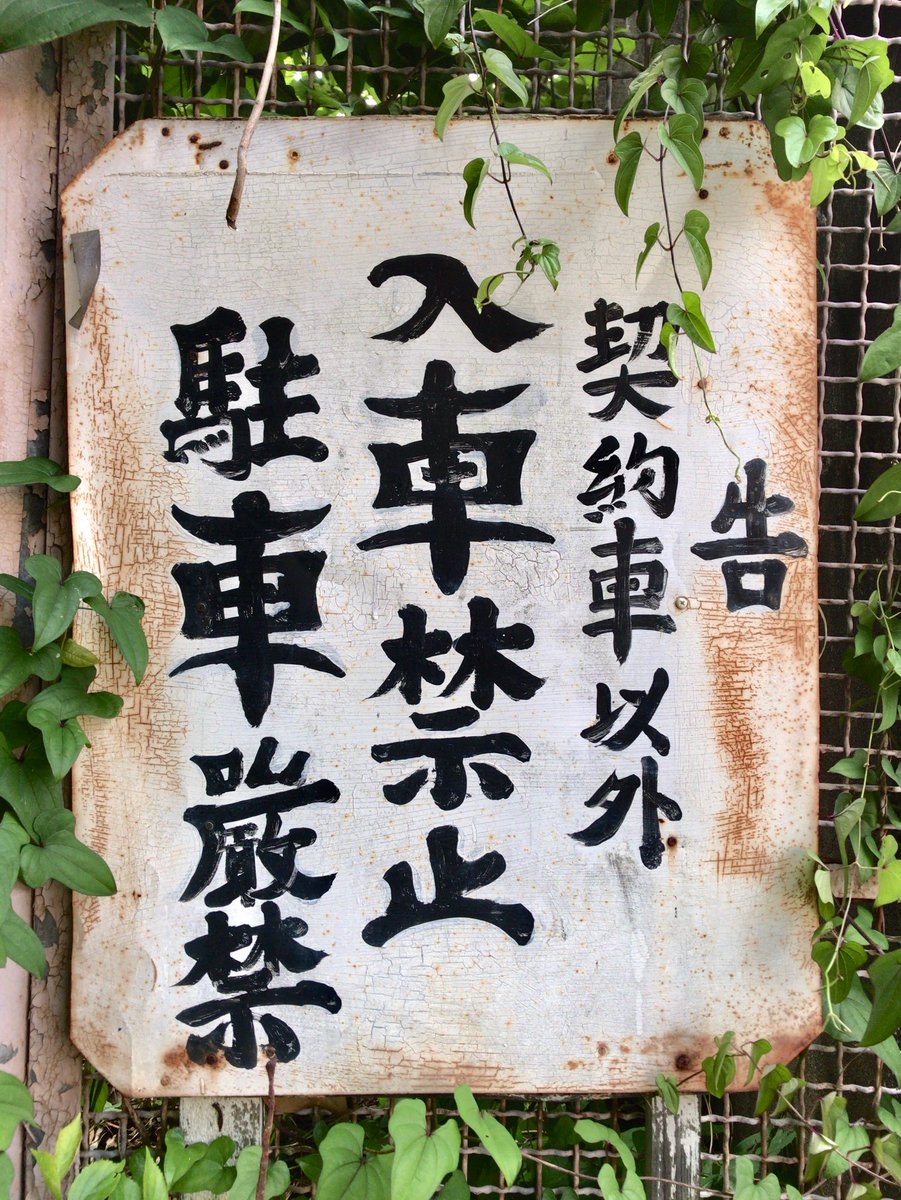 告
契約車以外
入車禁止
駐車厳禁